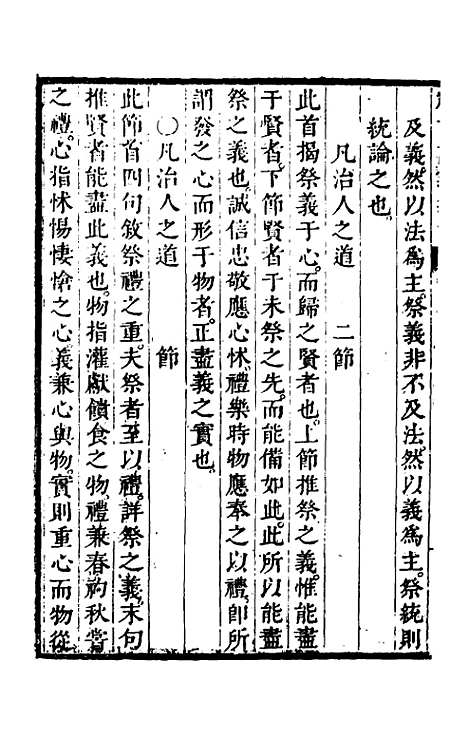 及義。然以法爲主。祭義非不及法。然以義爲主。祭統則
統論之也。
凡治人之道　二節
此首揭祭義于心。而歸之賢者也。上節推祭之義。惟能盡
于賢者。下節賢者于未祭之先。而能備如此。此所以能盡
祭之義也。誠信忠敬應心怵。禮樂時物應奉之以禮。即所
謂發之心而形于物者。正盡義之實也。
○凡治人之道　節
此節首四句敘祭禮之重。夫祭者至以禮。詳祭之義。末句
推賢者能盡此義也。物指灌獻饋食之物。禮兼春礿秋嘗
之禮。心指怵惕悽愴之心。義兼心與物。實則重心而物從